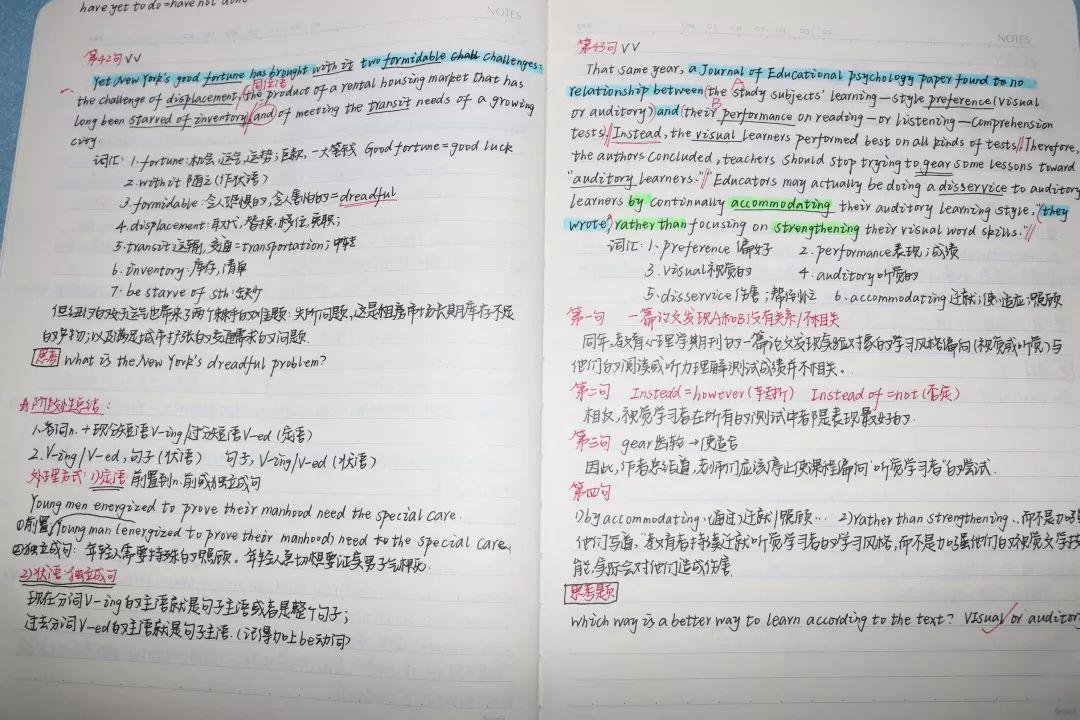 have yet to do = have not done
NOTES
第42句 VV
Yet New York's good fortune has brought with it two formidable challenges:
同位语
the challenge of displacement, the product of a rental housing market that has
long been starved of inventory, and of meeting the transit needs of a growing
city.
词汇: 1. fortune: 机会, 运气, 运势; 巨款, 一大笔钱 Good fortune = good luck
2. with it 随之 (作状语)
3. formidable: 令人恐惧的, 令人害怕的 = dreadful
4. displacement: 取代, 替换, 移位, 免职;
5. transit 运输, 交通 = transportation; 中转
6. inventory: 库存, 清单
7. be starve of sth: 缺少
但纽约的好运气也带来了两个棘手的难题: 失所问题, 这是租房市场长期库存不足
的产物; 以及满足城市扩张的交通需求的问题.
思考 What is the New York's dreadful problem?
阶段性总结:
1. 名词n. + 现分短语V-ing/过分短语V-ed (定语)
2. V-ing/V-ed, 句子 (状语) 句子, V-ing/V-ed (状语)
处理方式: 1) 定语: 前置到n.前或独立成句
Young men energized to prove their manhood need the special care.
①前置 Young man (energized to prove their manhood) need to the special care.
②独立成句: 年轻人需要特殊的照顾. 年轻人急切想要证实男子气概.
2) 状语: 独立成句
现在分词V-ing的主语就是句子主语或者是整个句子;
过去分词V-ed的主语就是句子主语. (记得加上be动词)
NOTES
第43句 VV
That same year, a Journal of Educational psychology paper found to no
A
relationship between (the study subjects' learning-style preference (visual
B
or auditory) and (their performance on reading-or listening-comprehension
tests. Instead, the visual learners performed best on all kinds of tests. Therefore,
the authors concluded, teachers should stop trying to gear some lessons toward
"auditory learners." Educators may actually be doing a disservice to auditory
learners by continually accommodating their auditory learning style, "they
wrote, rather than focusing on strengthening their visual word skills."
词汇: 1. preference 偏好 2. performance 表现; 成绩
3. visual 视觉的 4. auditory 听觉的
5. disservice 伤害; 帮倒忙 6. accommodating 迁就; 使适应; 照顾
第一句 一篇论文发现A和B没有关系/不相关
同年, 教育心理学期刊的一篇论文发现实验对象的学习风格偏向(视觉或听觉)与
他们的阅读或听力理解测试成绩并不相关。
第二句 Instedd = however (转折) Instead of = not (否定)
相反, 视觉学习者在所有的测试中都是表现最好的.
第三句 gear 齿轮 → 使适合
因此, 作者总结道, 老师们应该停止使课程偏向“听觉学习者”的尝试.
第四句
1) by accommodating. (通过) 迁就/照顾... 2) rather than strengthening... 而不是加强
他们写道, "教育者持续迁就听觉学习者的学习风格, 而不是加强他们的视觉文字技
能, 实际会对他们造成伤害.
思考题
Which way is a better way to learn according to the text? Visual or auditory